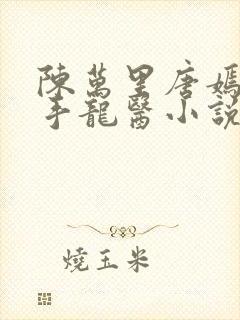 陳萬里唐嫣
手龍醫小說
燒玉米